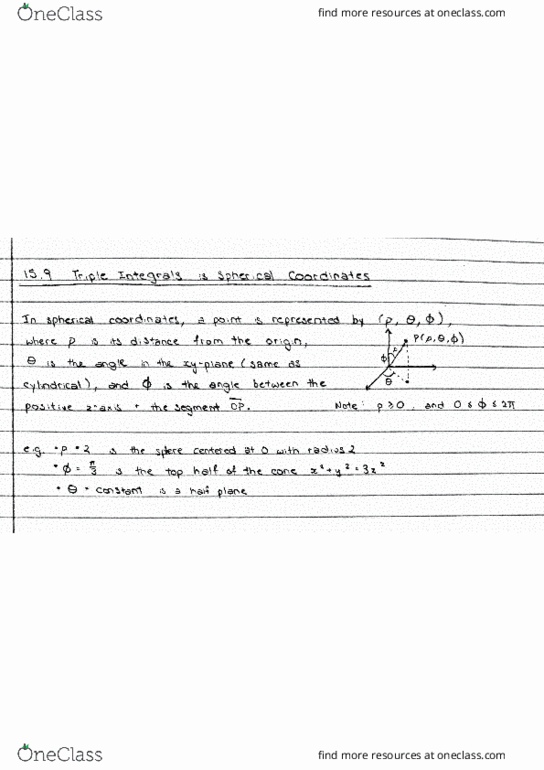 OneClass
find more resources at oneclass.com
15.9 Triple Integrals is Spherical Coordinates
In spherical coordinates, a point is represented by (ρ, θ, ϕ),
where ρ is its distance from the origin,
P(ρ,θ,ϕ)
θ is the angle in the xy-plane (same as
ϕ
cylindrical), and ϕ is the angle between the
θ
positive z-axis + the segment OP.
Note: ρ≥0, and 0≤ϕ≤2π
e.g. •ρ=2 is the sphere centered at O with radius 2
•ϕ=π/3 is the top half of the cone x²+y²=3z²
•θ=constant is a half plane
OneClass
find more resources at oneclass.com